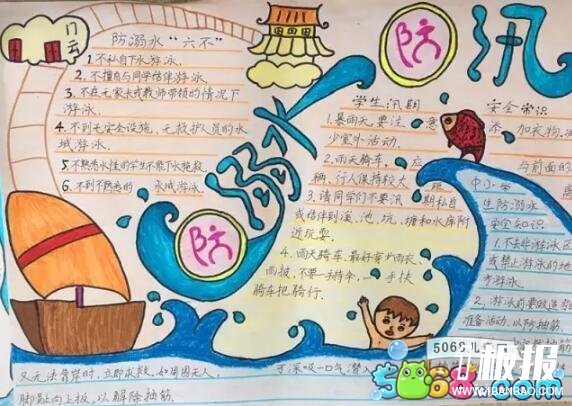 门云
防溺水“六不”
1.不私自下水游泳.
2.不擅自与同学结伴游泳.
3.不在无家长或教师带领的情况下
游泳.
4.不到无安全设施、无救护人员的水
域游泳.
5.不熟悉水性的学生不能下水施救.
6.不到不熟悉的水域游泳.
防溺水
防汛
学生汛期安全常识
1.暴雨天,要注意添加衣物,
少室外活动.
2.雨天骑车,应与前面的
辆、行人保持较大
3.请同学们不要汛期私自
或结伴到溪、池、坑、塘和水库附
近玩耍.
4.雨天骑车,最好穿上雨衣、
雨披,不要一手持伞,一手扶
骑车把骑行.
中小学
生防溺水
安全知识
1.不去非游泳区
或禁止游泳的地
方游泳.
2.游泳前要做适
准备活动,以防抽筋.
又无法靠岸时,立即求救,如周围无人,
于深吸一口气潜入
脚趾向上扳,以解除抽筋.
5068儿
5068.com
板报
WWW.IBANBAO.COM